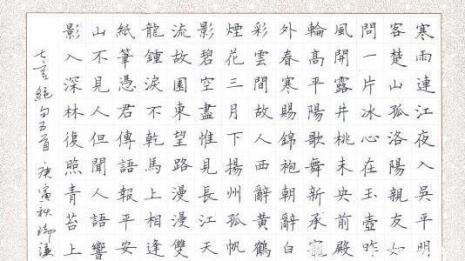 寒雨連江夜入吳平明
客楚山孤洛陽親友如
問一片冰心在玉壺昨
風開露井桃未央前殿
輪高平陽歌舞新承寵
外春寒賜錦袍朝辭白
彩雲間故人西辭黃鶴
煙花三月下揚州孤帆
影碧空盡惟見長江天
流故園東望路漫漫雙
龍鍾淚不乾馬上相逢
紙筆憑君傳語報平安
山不見人但聞人語響
影入深林復照青苔上
七言絕句五首 庚寅秋